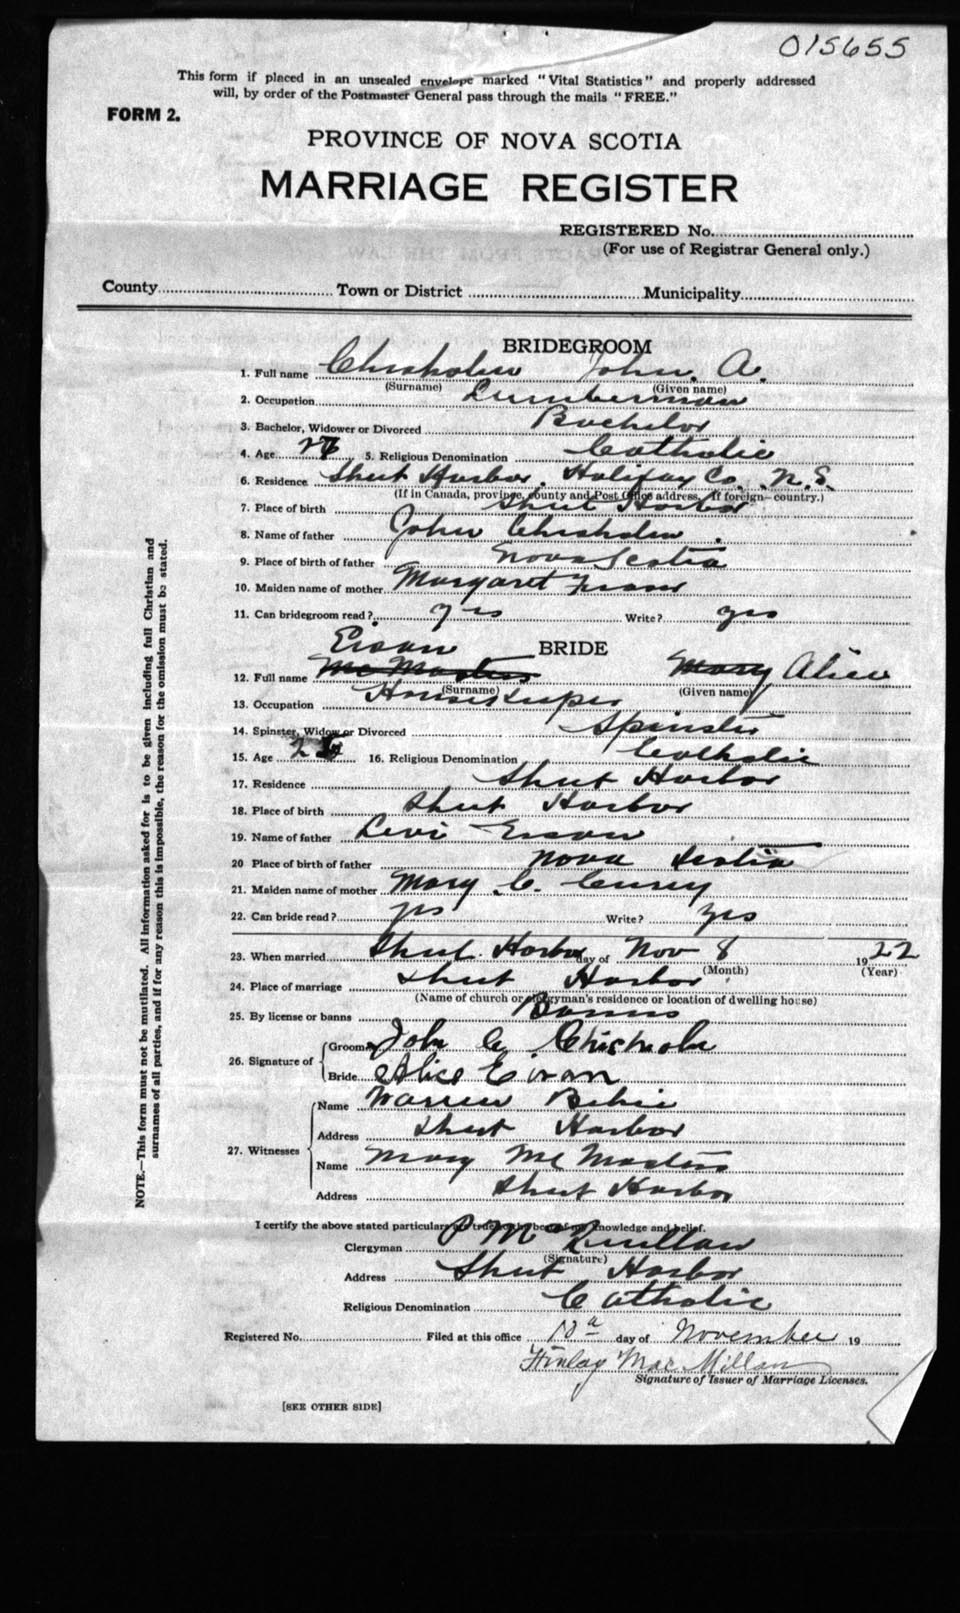 015655
This form if placed in an unsealed envelope marked "Vital Statistics" and properly addressed
will, by order of the Postmaster General pass through the mails "FREE."
FORM 2.
PROVINCE OF NOVA SCOTIA
MARRIAGE REGISTER
REGISTERED No.
(For use of Registrar General only.)
County Town or District Municipality
BRIDEGROOM
1. Full name Chisholm John. A.
(Surname) (Given name)
2. Occupation Lumberman
3. Bachelor, Widower or Divorced Bachelor
4. Age 5. Religious Denomination Catholic
6. Residence Sheet Harbor. Halifax Co. N.S.
(If in Canada, province, county and Post Office address, If foreign—country.)
7. Place of birth Sheet Harbor
8. Name of father John Chisholm
9. Place of birth of father Nova Scotia
10. Maiden name of mother Margaret Fraser
11. Can bridegroom read? yes Write? yes
BRIDE
12. Full name McMasters Mary Alice
(Surname) (Given name)
13. Occupation Housekeeper
14. Spinster, Widow or Divorced Spinster
15. Age 16. Religious Denomination Catholic
17. Residence Sheet Harbor
18. Place of birth Sheet Harbor
19. Name of father Levi
20 Place of birth of father Nova Scotia
21. Maiden name of mother Mary C.
22. Can bride read? yes Write? yes
23. When married Sheet Harbor day of Nov 8 1922
(Month) (Year)
24. Place of marriage Sheet Harbor
(Name of church or clergyman's residence or location of dwelling house)
25. By license or banns Banns
26. Signature of Groom John Chisholm
Bride Alice
27. Witnesses Name Warren
Address Sheet Harbor
Name Mary McMasters
Address Sheet Harbor
I certify the above stated particulars are true to the best of my knowledge and belief.
Clergyman P McQuillan
(Signature)
Address Sheet Harbor
Religious Denomination Catholic
Registered No. Filed at this office day of November 19
Finlay MacMillan
Signature of Issuer of Marriage Licenses.
[SEE OTHER SIDE]
NOTE.—This form must not be mutilated. All information asked for is to be given including full Christian and
surnames of all parties, and if for any reason this is impossible, the reason for the omission must be stated.